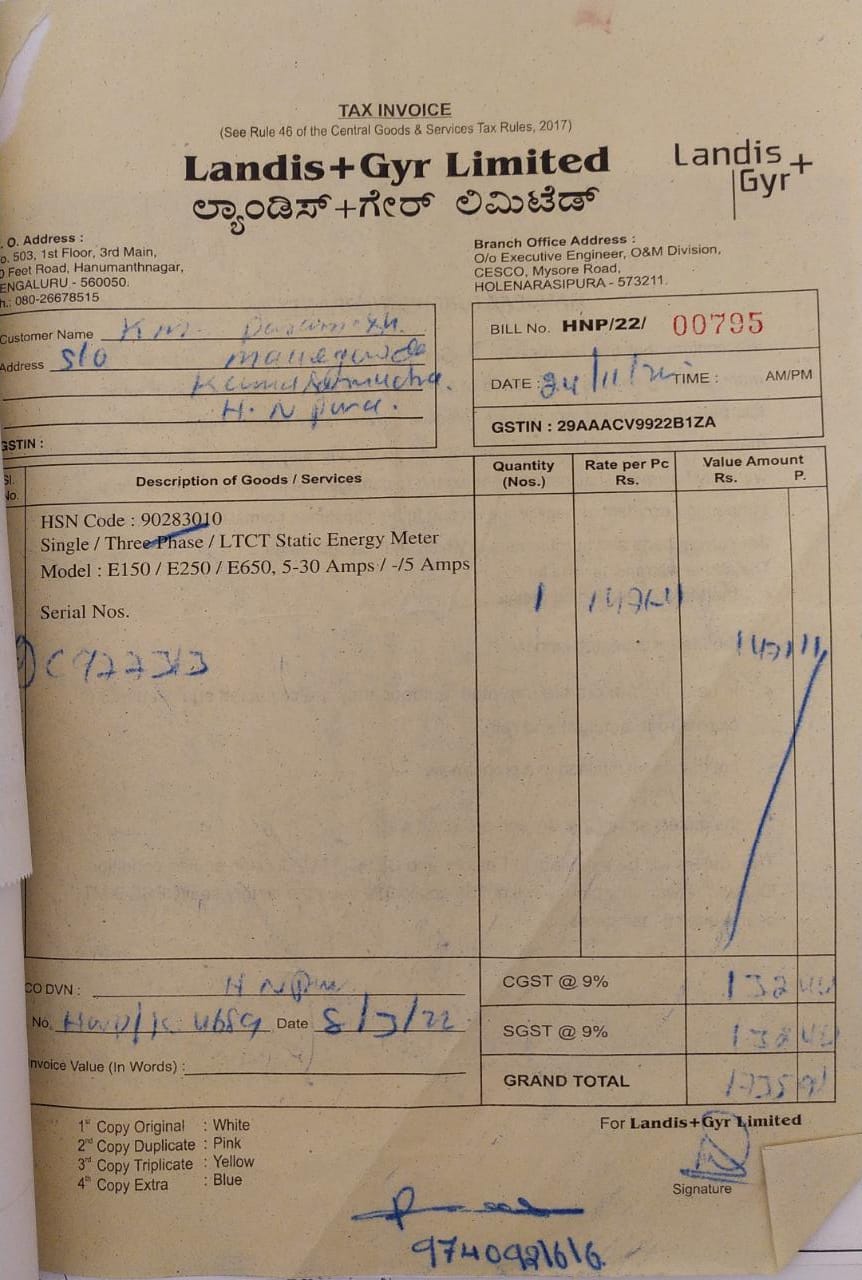 TAX INVOICE
(See Rule 46 of the Central Goods & Services Tax Rules, 2017)
Landis+Gyr Limited
ಲ್ಯಾಂಡಿಸ್+ಗೇರ್ ಲಿಮಿಟೆಡ್
Landis
Gyr+
. O. Address :
o. 503, 1st Floor, 3rd Main,
0 Feet Road, Hanumanthnagar,
ENGALURU - 560050.
h.: 080-26678515
Branch Office Address :
O/o Executive Engineer, O&M Division,
CESCO, Mysore Road,
HOLENARASIPURA - 573211.
Customer Name
Address S/o
H. N pura.
GSTIN :
BILL No. HNP/22/ 00795
DATE : 24/11/ TIME : AM/PM
GSTIN : 29AAACV9922B1ZA
Sl. No. Description of Goods / Services Quantity (Nos.) Rate per Pc Rs. Value Amount Rs. P.
HSN Code : 90283010
Single / Three Phase / LTCT Static Energy Meter
Model : E150 / E250 / E650, 5-30 Amps / -/5 Amps
1
Serial Nos.
CO DVN :
CGST @ 9% 132
No. Date 8/3/22
SGST @ 9% 132
Invoice Value (In Words) :
GRAND TOTAL
1st Copy Original : White
2nd Copy Duplicate : Pink
3rd Copy Triplicate : Yellow
4th Copy Extra : Blue
For Landis+Gyr Limited
Signature